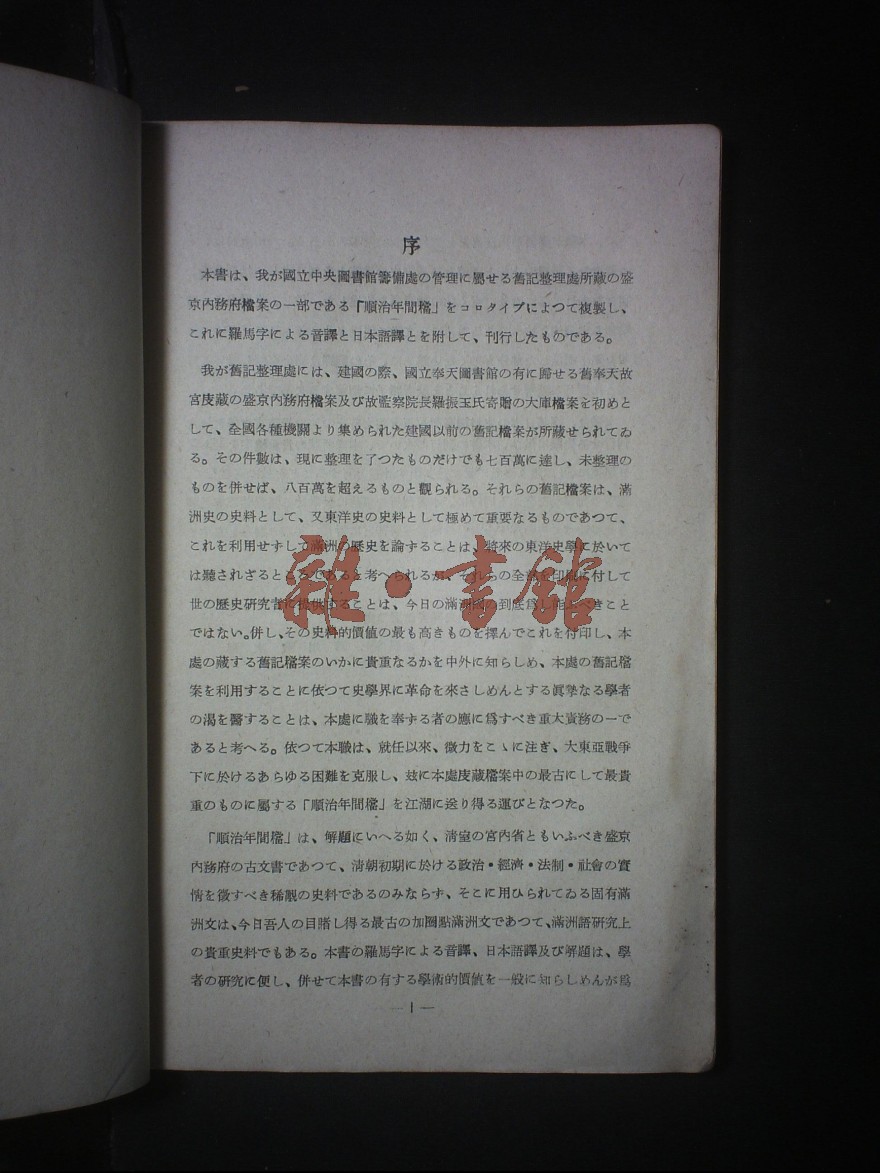 序
本書は、我が國立中央圖書館籌備處の管理に屬せる舊記整理處所藏の盛
京內務府檔案の一部である「順治年間檔」をコロタイプによつて複製し、
これに羅馬字による音譯と日本語譯とを附して、刊行したものである。
我が舊記整理處には、建國の際、國立奉天圖書館の有に歸せる舊奉天故
宮庋藏の盛京內務府檔案及び故監察院長羅振玉氏寄贈の大庫檔案を初めと
して、全國各種機關より集められた建國以前の舊記檔案が所藏せられてゐ
る。その件數は、現に整理を了つたものだけでも七百萬に達し、未整理の
ものを併せば、八百萬を超えるものと觀られる。それらの舊記檔案は、滿
洲史の史料として、又東洋史の史料として極めて重要なるものであつて、
これを利用せずして滿洲の歷史を論ずることは、將來の東洋史學に於いて
は聽されざるところであると考へられるが、それらの全部を印刷に付して
世の歷史研究者に提供することは、今日の滿洲國の到底爲し能ふべきこと
ではない。併し、その史料的價値の最も高きものを擇んでこれを付印し、本
處の藏する舊記檔案のいかに貴重なるかを中外に知らしめ、本處の舊記檔
案を利用することに依つて史學界に革命を來さしめんとする眞摯なる學者
の渴を醫することは、本處に職を奉ずる者の應に爲すべき重大責務の一で
あると考へる。依つて本職は、就任以來、微力をこゝに注ぎ、大東亞戰爭
下に於けるあらゆる困難を克服し、玆に本處庋藏檔案中の最古にして最貴
重のものに屬する「順治年間檔」を江湖に送り得る運びとなつた。
「順治年間檔」は、解題にいへる如く、淸室の宮內省ともいふべき盛京
內務府の古文書であつて、淸朝初期に於ける政治・經濟・法制・社會の實
情を徵すべき稀覯の史料であるのみならず、そこに用ひられてゐる固有滿
洲文は、今日吾人の目睹し得る最古の加圈點滿洲文であつて、滿洲語研究上
の貴重史料でもある。本書の羅馬字による音譯、日本語譯及び解題は、學
者の研究に便し、併せて本書の有する學術的價値を一般に知らしめんが爲
— 1 —
雜·書館